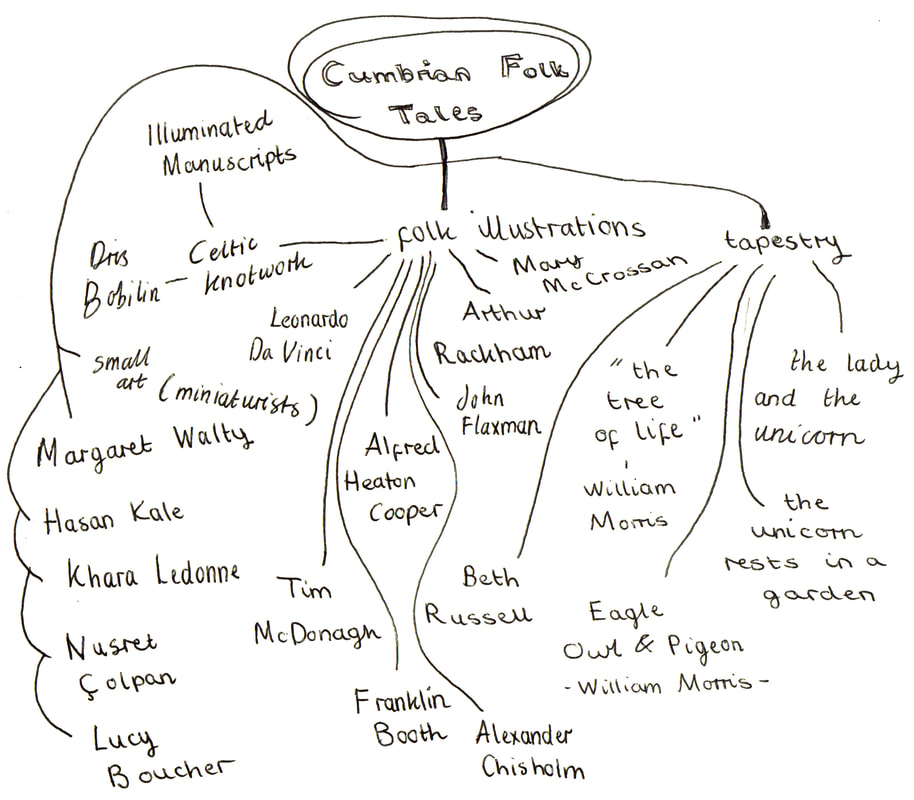 Cumbrian Folk
Tales
Illuminated
Manuscripts
folk illustrations
tapestry
Dris
Bobilin
Celtic
knotwork
Mary
McCrossan
Leonardo
Da Vinci
Arthur
Rackham
small
art (miniaturists)
"the
tree
of life"
William
Morris
the lady
and the
unicorn
John
Flaxman
Margaret Walty
Alfred
Heaton
Cooper
Hasan Kale
the
unicorn
rests in a
garden
Khara Ledonne
Tim
McDonagh
Beth
Russell
Eagle
Owl & Pigeon
- William Morris -
Nusret
Çolpan
Franklin
Booth
Alexander
Chisholm
Lucy
Boucher